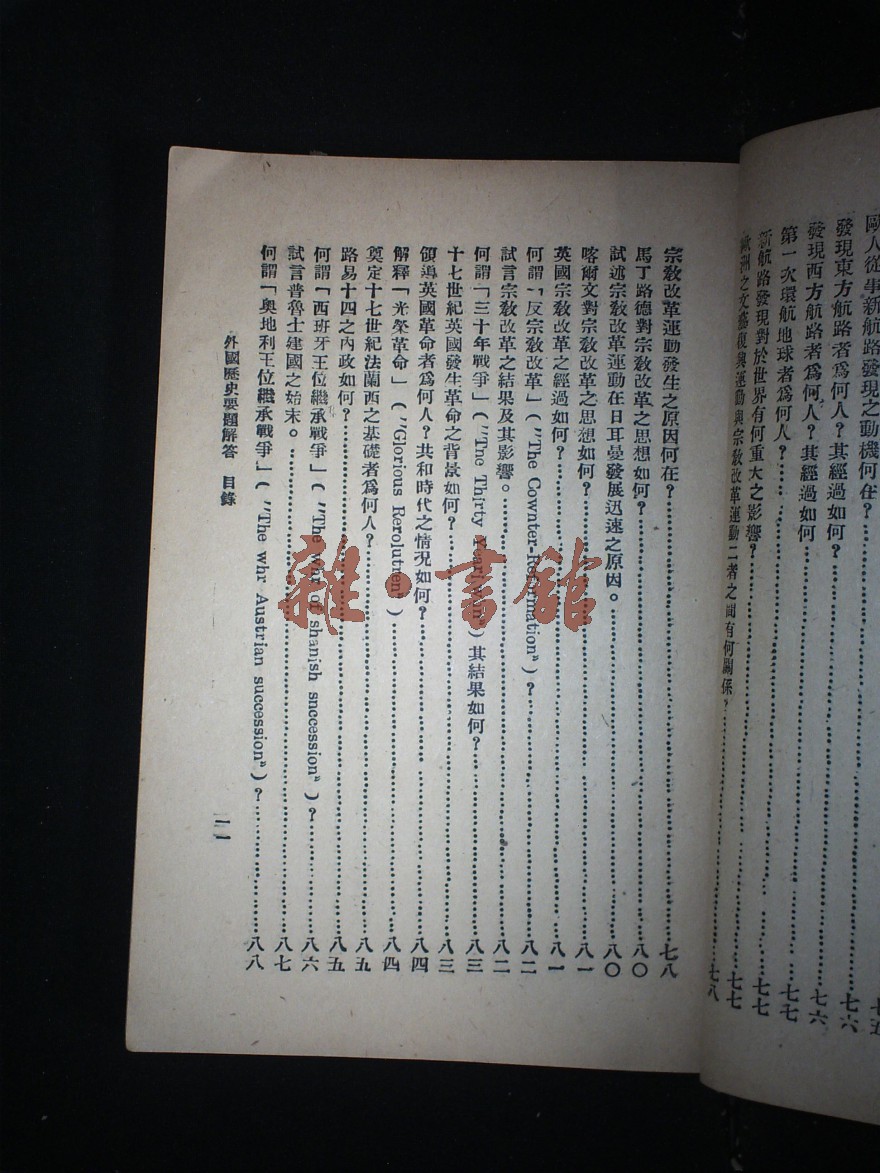 歐人從事新航路發現之動機何在?……七五
發現東方航路者爲何人?其經過如何?……七六
發現西方航路者爲何人?其經過如何……七六
第一次環航地球者爲何人?……七七
新航路發現對於世界有何重大之影響?……七七
歐洲之文藝復興運動與宗敎改革運動二者之間有何關係?……七八
宗敎改革運動發生之原因何在?……七八
馬丁路德對宗敎改革之思想如何?……八〇
試述宗敎改革運動在日耳曼發展迅速之原因。……八〇
喀爾文對宗敎改革之思想如何?……八一
英國宗敎改革之經過如何?……八一
何謂「反宗敎改革」("The Cownter-Reformation")?……八二
試言宗敎改革之結果及其影響。……八二
何謂「三十年戰爭」("Tne Thirty)其結果如何?……八三
十七世紀英國發生革命之背景如何?……八三
領導英國革命者爲何人?共和時代之情況如何?……八四
解釋「光榮革命」("Glorious Rerolutren")……八四
奠定十七世紀法蘭西之基礎者爲何人?……八五
路易十四之內政如何?……八五
何謂「西班牙王位繼承戰爭」("The war of shanish snccession")?……八六
試言普魯士建國之始末。……八七
何謂「奧地利王位繼承戰爭」("The whr Austrian succession")?……八八
外國歷史要題解答 目錄
雜·書館